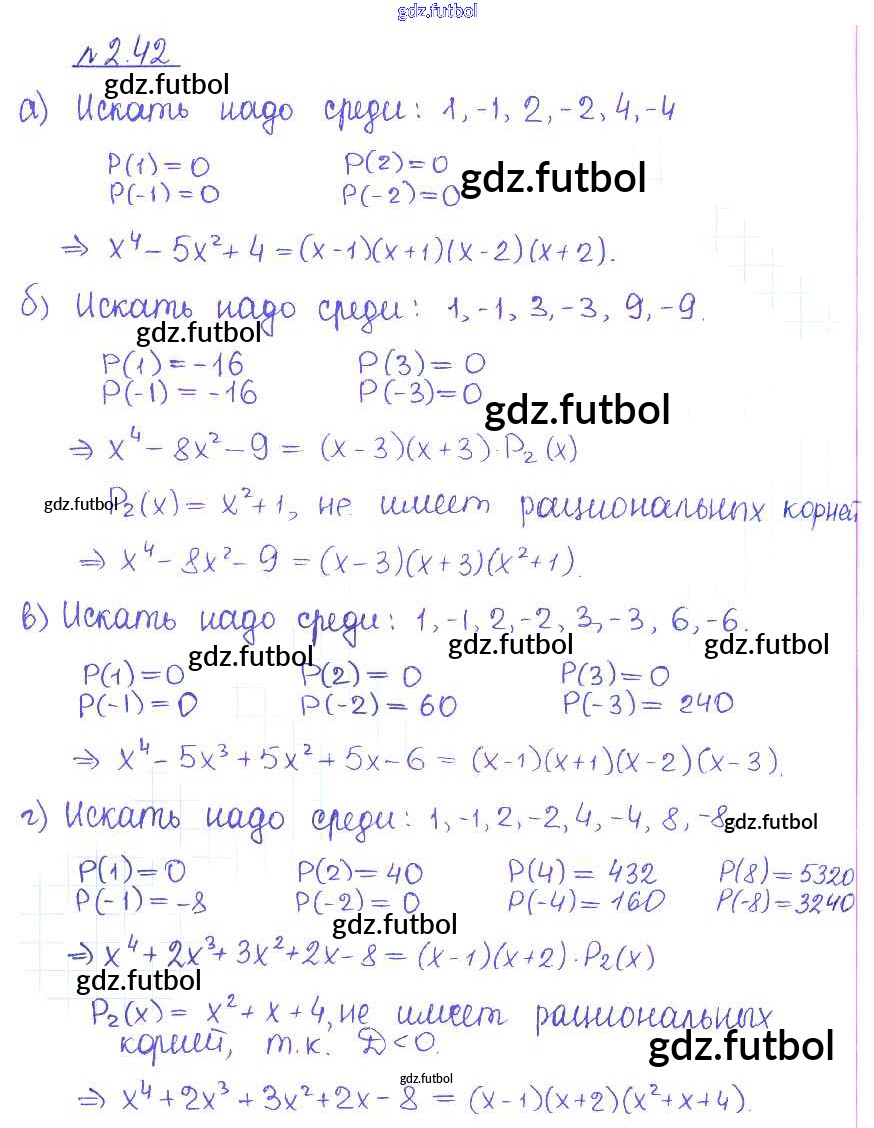 gdz.futbol
№ 2.42
gdz.futbol
а) Искать надо среди: 1, -1, 2, -2, 4, -4
P(1) = 0 P(2) = 0
gdz.futbol
P(-1) = 0 P(-2) = 0
⇒ x⁴ - 5x² + 4 = (x-1)(x+1)(x-2)(x+2).
б) Искать надо среди: 1, -1, 3, -3, 9, -9.
gdz.futbol
P(1) = -16 P(3) = 0
P(-1) = -16 P(-3) = 0
gdz.futbol
⇒ x⁴ - 8x² - 9 = (x-3)(x+3)·P₂(x)
gdz.futbol
P₂(x) = x² + 1, не имеет рациональных корней
⇒ x⁴ - 8x² - 9 = (x-3)(x+3)(x²+1).
в) Искать надо среди: 1, -1, 2, -2, 3, -3, 6, -6.
gdz.futbol gdz.futbol gdz.futbol
P(1) = 0 P(2) = 0 P(3) = 0
P(-1) = 0 P(-2) = 60 P(-3) = 240
⇒ x⁴ - 5x³ + 5x² + 5x - 6 = (x-1)(x+1)(x-2)(x-3).
г) Искать надо среди: 1, -1, 2, -2, 4, -4, 8, -8
gdz.futbol
P(1) = 0 P(2) = 40 P(4) = 432 P(8) = 5320
P(-1) = -8 P(-2) = 0 P(-4) = 160 P(-8) = 3240
gdz.futbol
⇒ x⁴ + 2x³ + 3x² + 2x - 8 = (x-1)(x+2)·P₂(x)
gdz.futbol
P₂(x) = x² + x + 4, не имеет рациональных
корней, т.к. D < 0.
gdz.futbol
gdz.futbol
⇒ x⁴ + 2x³ + 3x² + 2x - 8 = (x-1)(x+2)(x²+x+4).